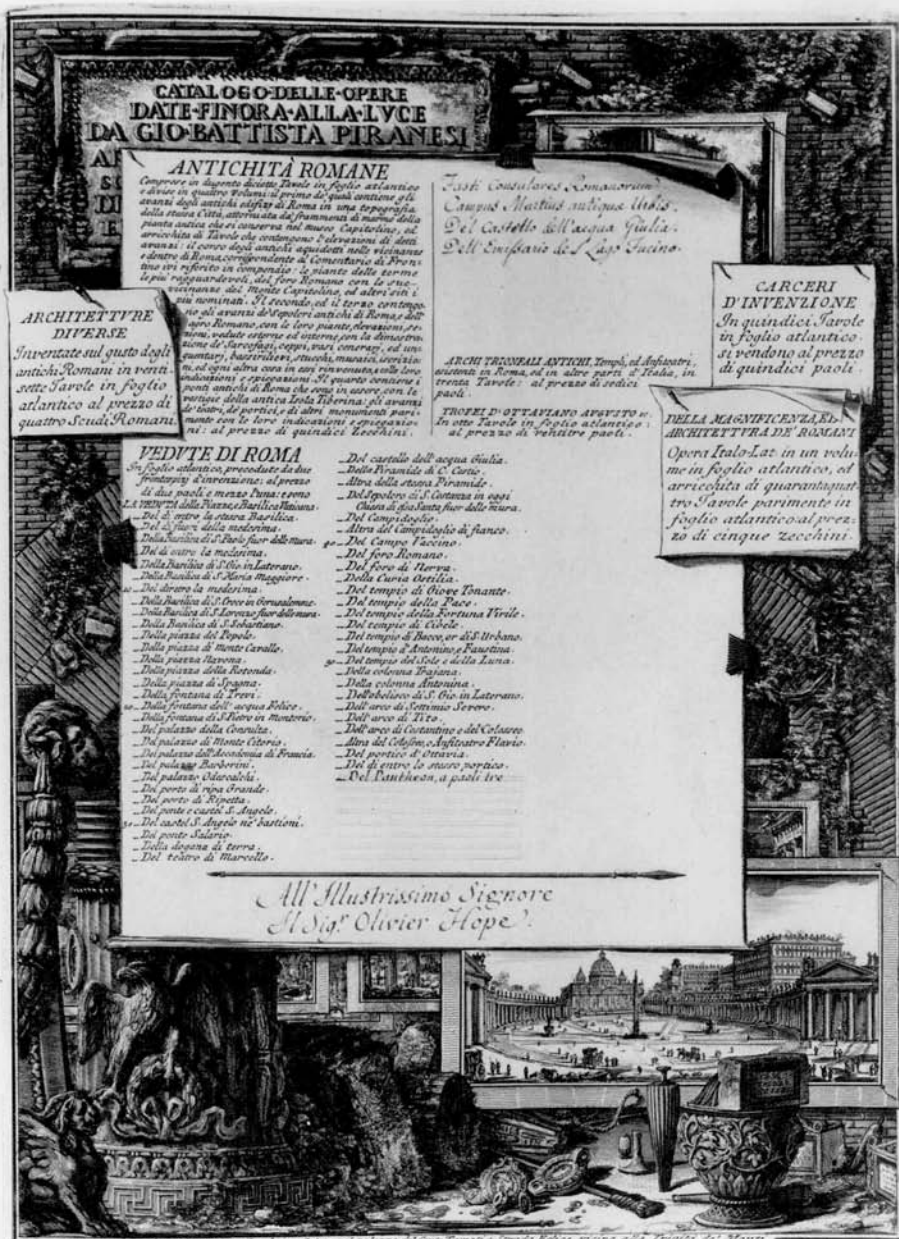 CATALOGO·DELLE·OPERE
DATE·FINORA·ALLA·LVCE
DA GIO·BATTISTA PIRANESI
ANTICHITÀ ROMANE
Comprese in dugento diciotto Tavole in foglio atlantico
e divise in quattro Volumi: il primo de' quali contiene gli
avanzi degli antichi edifizj di Roma in una topografia
della stessa Città, attorniata da' frammenti di marmo della
pianta antica che si conserva nel museo Capitolino, ed
arricchita di Tavole che contengono l'elevazioni di detti
avanzi: il corso degli antichi aquidotti nelle vicinanze
e dentro di Roma, corrispondente al Comentario di Fron-
tino ivi riferito in compendio: le piante delle terme
le più ragguardevoli, del foro Romano con le sue
vicinanze del Monte Capitolino, ed altri siti i
più nominati. Il secondo, ed il terzo contengo-
no gli avanzi de' Sepolcri antichi di Roma, e dell'
agro Romano, con le loro piante, elevazioni, se-
zioni, vedute esterne ed interne, con la dimostra-
zione de' Sarcofagi, ceppi, vasi cenerarj, ed un-
guentarj, bassirilievi, stucchi, musaici, iscrizio-
ni, ed ogni altra cosa in essi rinvenuta, e colle loro
indicazioni e spiegazioni. Il quarto contiene i
ponti antichi di Roma che sono in essere, con le
vestigie della antica Isola Tiberina: gli avanzi
de' teatri, de' portici, e di altri monumenti pari-
mente con le loro indicazioni e spiegazio-
ni: al prezzo di quindici Zecchini.
Fasti Consulares Romanorum.
Campus Martius antiquæ Urbis.
Del Castello dell'acqua Giulia.
Dell'Emissario de L. Lago Fucino.
ARCHI TRIONFALI ANTICHI, Templi, ed Anfiteatri,
esistenti in Roma, ed in altre parti d'Italia, in
trenta Tavole: al prezzo di sedici
paoli.
TROFEI D'OTTAVIANO AVGVSTO
In otto Tavole in foglio atlantico:
al prezzo di ventitre paoli.
ARCHITETTVRE
DIVERSE
Inventate sul gusto degli
antichi Romani in venti-
sette Tavole in foglio
atlantico al prezzo di
quattro Scudi Romani.
CARCERI
D'INVENZIONE
In quindici Tavole
in foglio atlantico
si vendono al prezzo
di quindici paoli.
DELLA MAGNIFICENZA, ED
ARCHITETTVRA DE' ROMANI
Opera Italo-Lat. in un volu-
me in foglio atlantico, ed
arricchita di quarantaquat-
tro Tavole parimente in
foglio atlantico al prez-
zo di cinque zecchini.
VEDUTE DI ROMA
In foglio atlantico, precedute da due
frontespizj d'invenzione: al prezzo
di due paoli e mezzo l'una: e sono
LA VEDUTA della Piazza, e Basilica Vaticana.
_Del di entro la stessa Basilica.
_Del di fuori della medesima.
_Della Basilica di S. Paolo fuor delle mura.
_Del di entro la medesima.
_Della Basilica di S. Gio. in Laterano.
_Della Basilica di S. Maria Maggiore.
10_Del dietro la medesima.
_Della Basilica di S. Croce in Gerusalemme.
_Della Basilica di S. Lorenzo fuor delle mura.
_Della Basilica di S. Sebastiano.
_Della piazza del Popolo.
_Della piazza di Monte Cavallo.
_Della piazza Navona.
_Della piazza della Rotonda.
_Della piazza di Spagna.
_Della fontana di Trevi.
20_Della fontana dell'acqua Felice.
_Della fontana di S. Pietro in Montorio.
_Del palazzo della Consulta.
_Del palazzo di Monte Citorio.
_Del palazzo dell'Accademia di Francia.
_Del palazzo Barberini.
_Del palazzo Odescalchi.
_Del porto di ripa Grande.
_Del porto di Ripetta.
_Del ponte e castel S. Angelo.
30_Del castel S. Angelo ne' bastioni.
_Del ponte Salario.
_Della dogana di terra.
_Del teatro di Marcello.
_Del castello dell'acqua Giulia.
_Della Piramide di C. Cestio.
_Altra della stessa Piramide.
_Del Sepolcro di S. Costanza in oggi
Chiesa di essa Santa fuor delle mura.
_Del Campidoglio.
_Altra del Campidoglio di fianco.
40_Del Campo Vaccino.
_Del foro Romano.
_Del foro di Nerva.
_Della Curia Ostilia.
_Del tempio di Giove Tonante.
_Del tempio della Pace.
_Del tempio della Fortuna Virile.
_Del tempio di Cibele.
_Del tempio di Bacco, or di S. Urbano.
_Del tempio d'Antonino, e Faustina.
50_Del tempio del Sole e della Luna.
_Della colonna Trajana.
_Della colonna Antonina.
_Dell'obelisco di S. Gio. in Laterano.
_Dell'arco di Settimio Severo.
_Dell'arco di Tito.
_Dell'arco di Costantino e del Colosseo.
_Altra del Colosseo, o Anfiteatro Flavio.
_Del portico d'Ottavia.
_Del di entro lo stesso portico.
_Del Pantheon, a paoli tre
All'Illustrissimo Signore
Il Sigr. Olivier Hope.